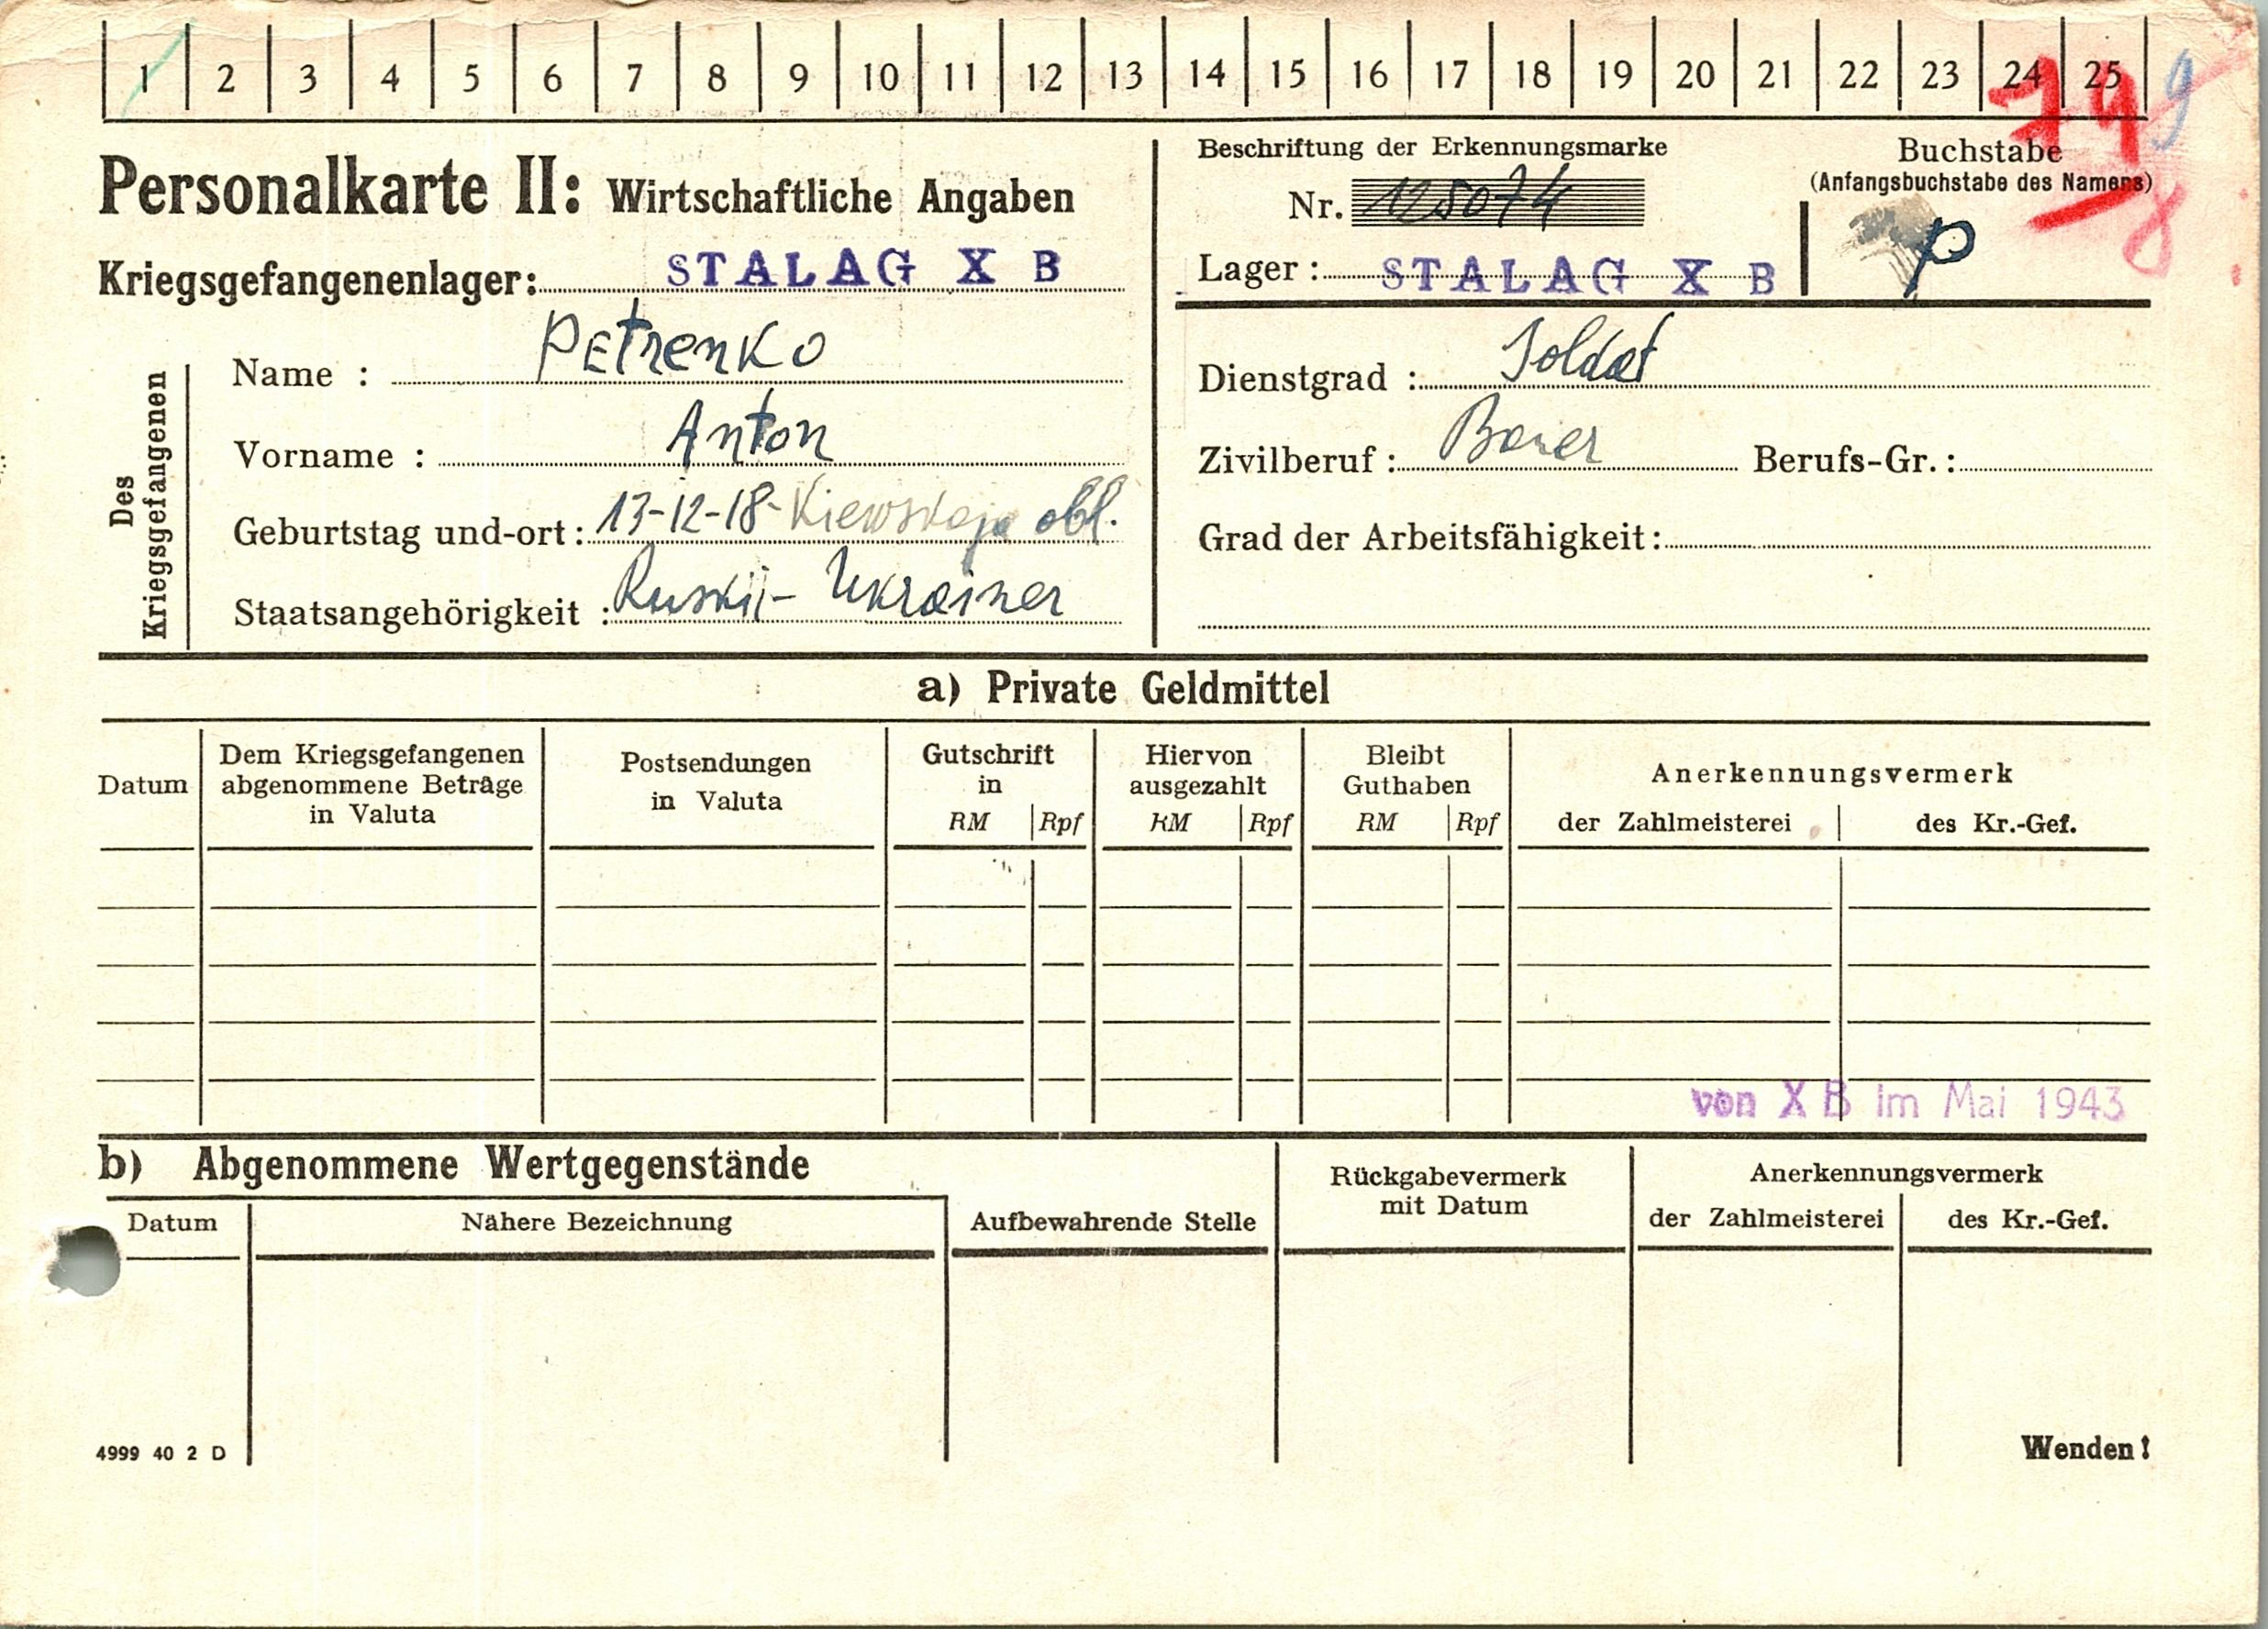 1 2 3 4 5 6 7 8 9 10 11 12 13 14 15 16 17 18 19 20 21 22 23 24 25
74 9
8
Personalkarte II: Wirtschaftliche Angaben
Kriegsgefangenenlager: STALAG X B
Beschriftung der Erkennungsmarke
Nr. 125074
Lager: STALAG X B
Buchstabe
(Anfangsbuchstabe des Namens)
P
Des
Kriegsgefangenen
Name : Petrenko
Vorname : Anton
Geburtstag und-ort: 13-12-18- Kiewskaja obl.
Staatsangehörigkeit : Ruskij- Ukrainer
Dienstgrad : Soldat
Zivilberuf: Bauer Berufs-Gr.:
Grad der Arbeitsfähigkeit:
a) Private Geldmittel
Datum
Dem Kriegsgefangenen
abgenommene Beträge
in Valuta
Postsendungen
in Valuta
Gutschrift
in
RM Rpf
Hiervon
ausgezahlt
RM Rpf
Bleibt
Guthaben
RM Rpf
Anerkennungsvermerk
der Zahlmeisterei des Kr.-Gef.
von X B im Mai 1943
b) Abgenommene Wertgegenstände
Datum Nähere Bezeichnung
Aufbewahrende Stelle
Rückgabevermerk
mit Datum
Anerkennungsvermerk
der Zahlmeisterei des Kr.-Gef.
4999 40 2 D
Wenden!